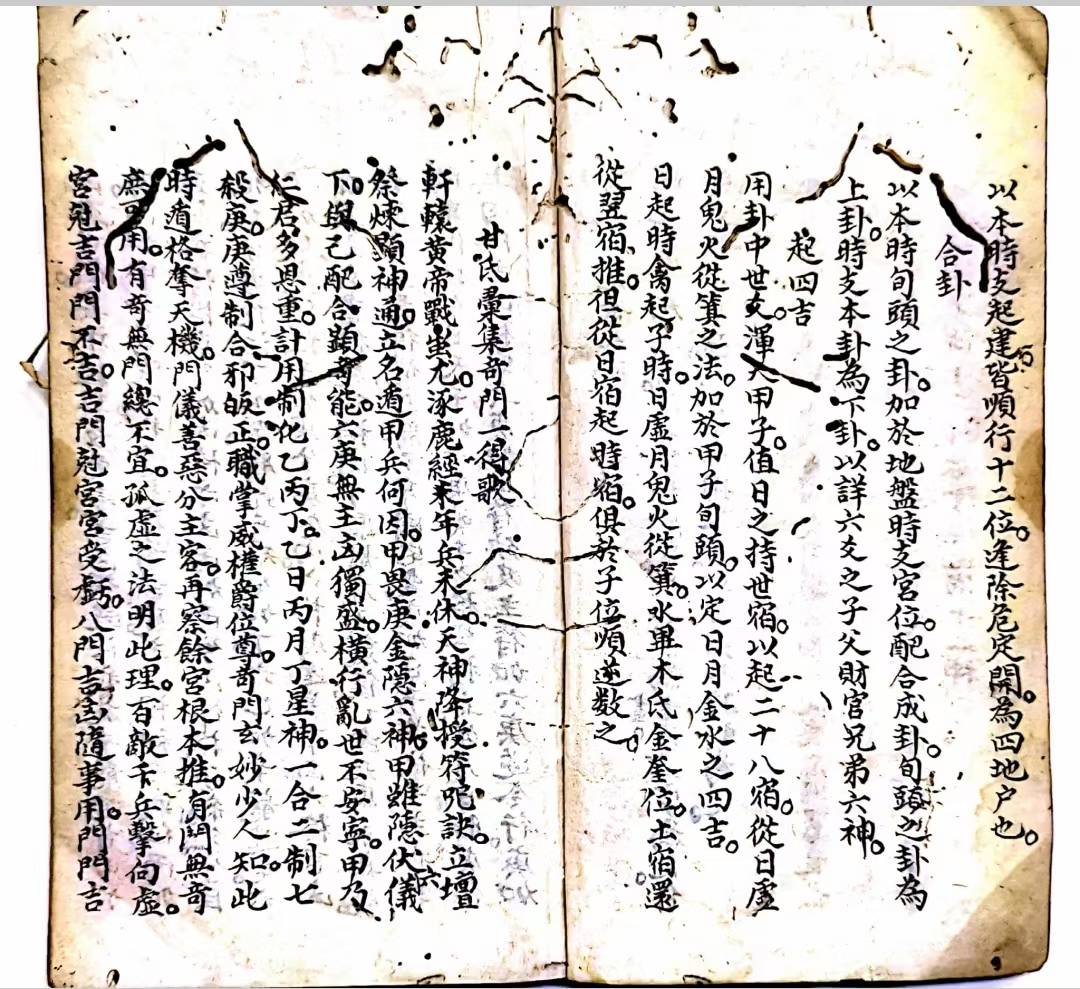 以本時支起建皆順行十二位。逢除危定開。為四地户也。
合卦
以本時旬頭之卦。加於地盤時支宮位。配合成卦。旬頭之卦為
上卦。時支本卦為下卦。以詳六爻之子父財官兄弟六神。
起四吉
用卦中世爻。渾天甲子。值日之持世宿。以起二十八宿。從日虛
月鬼火從箕之法。加於甲子旬頭。以定日月金水之四吉。
日起時禽起子時。日虛月鬼火從箕。水畢木氐金奎位。土宿還
從翌宿推。但從日宿起時宿。俱於子位順逆数之。
甘氏彙集奇門一得歌
軒轅黃帝戰蚩尤。涿鹿經来年兵未休。天神降授符咒訣。立壇
祭煉顯神通。立名遁甲兵何因。甲畏庚金隱六神。甲雖隱伏六儀
下。與乙配合顯奇能。六庚無主凶獨盛。横行亂世不安寧。甲乃
仁君多恩重。計用制化乙丙丁。乙日丙月丁星神。一合二制七
殺庚。庚遵制合邪皈正。職掌威權爵位尊。奇門玄妙少人知。此
時遁格奪天機。門儀善惡分主客。再察餘宮根本推。有門無奇
庶可用。有奇無門總不宜。孤虛之法明此理。百敵千兵擊向虛。
宮尅吉門門不吉。吉門尅宮宮受虧。八門吉凶隨事用。門門吉